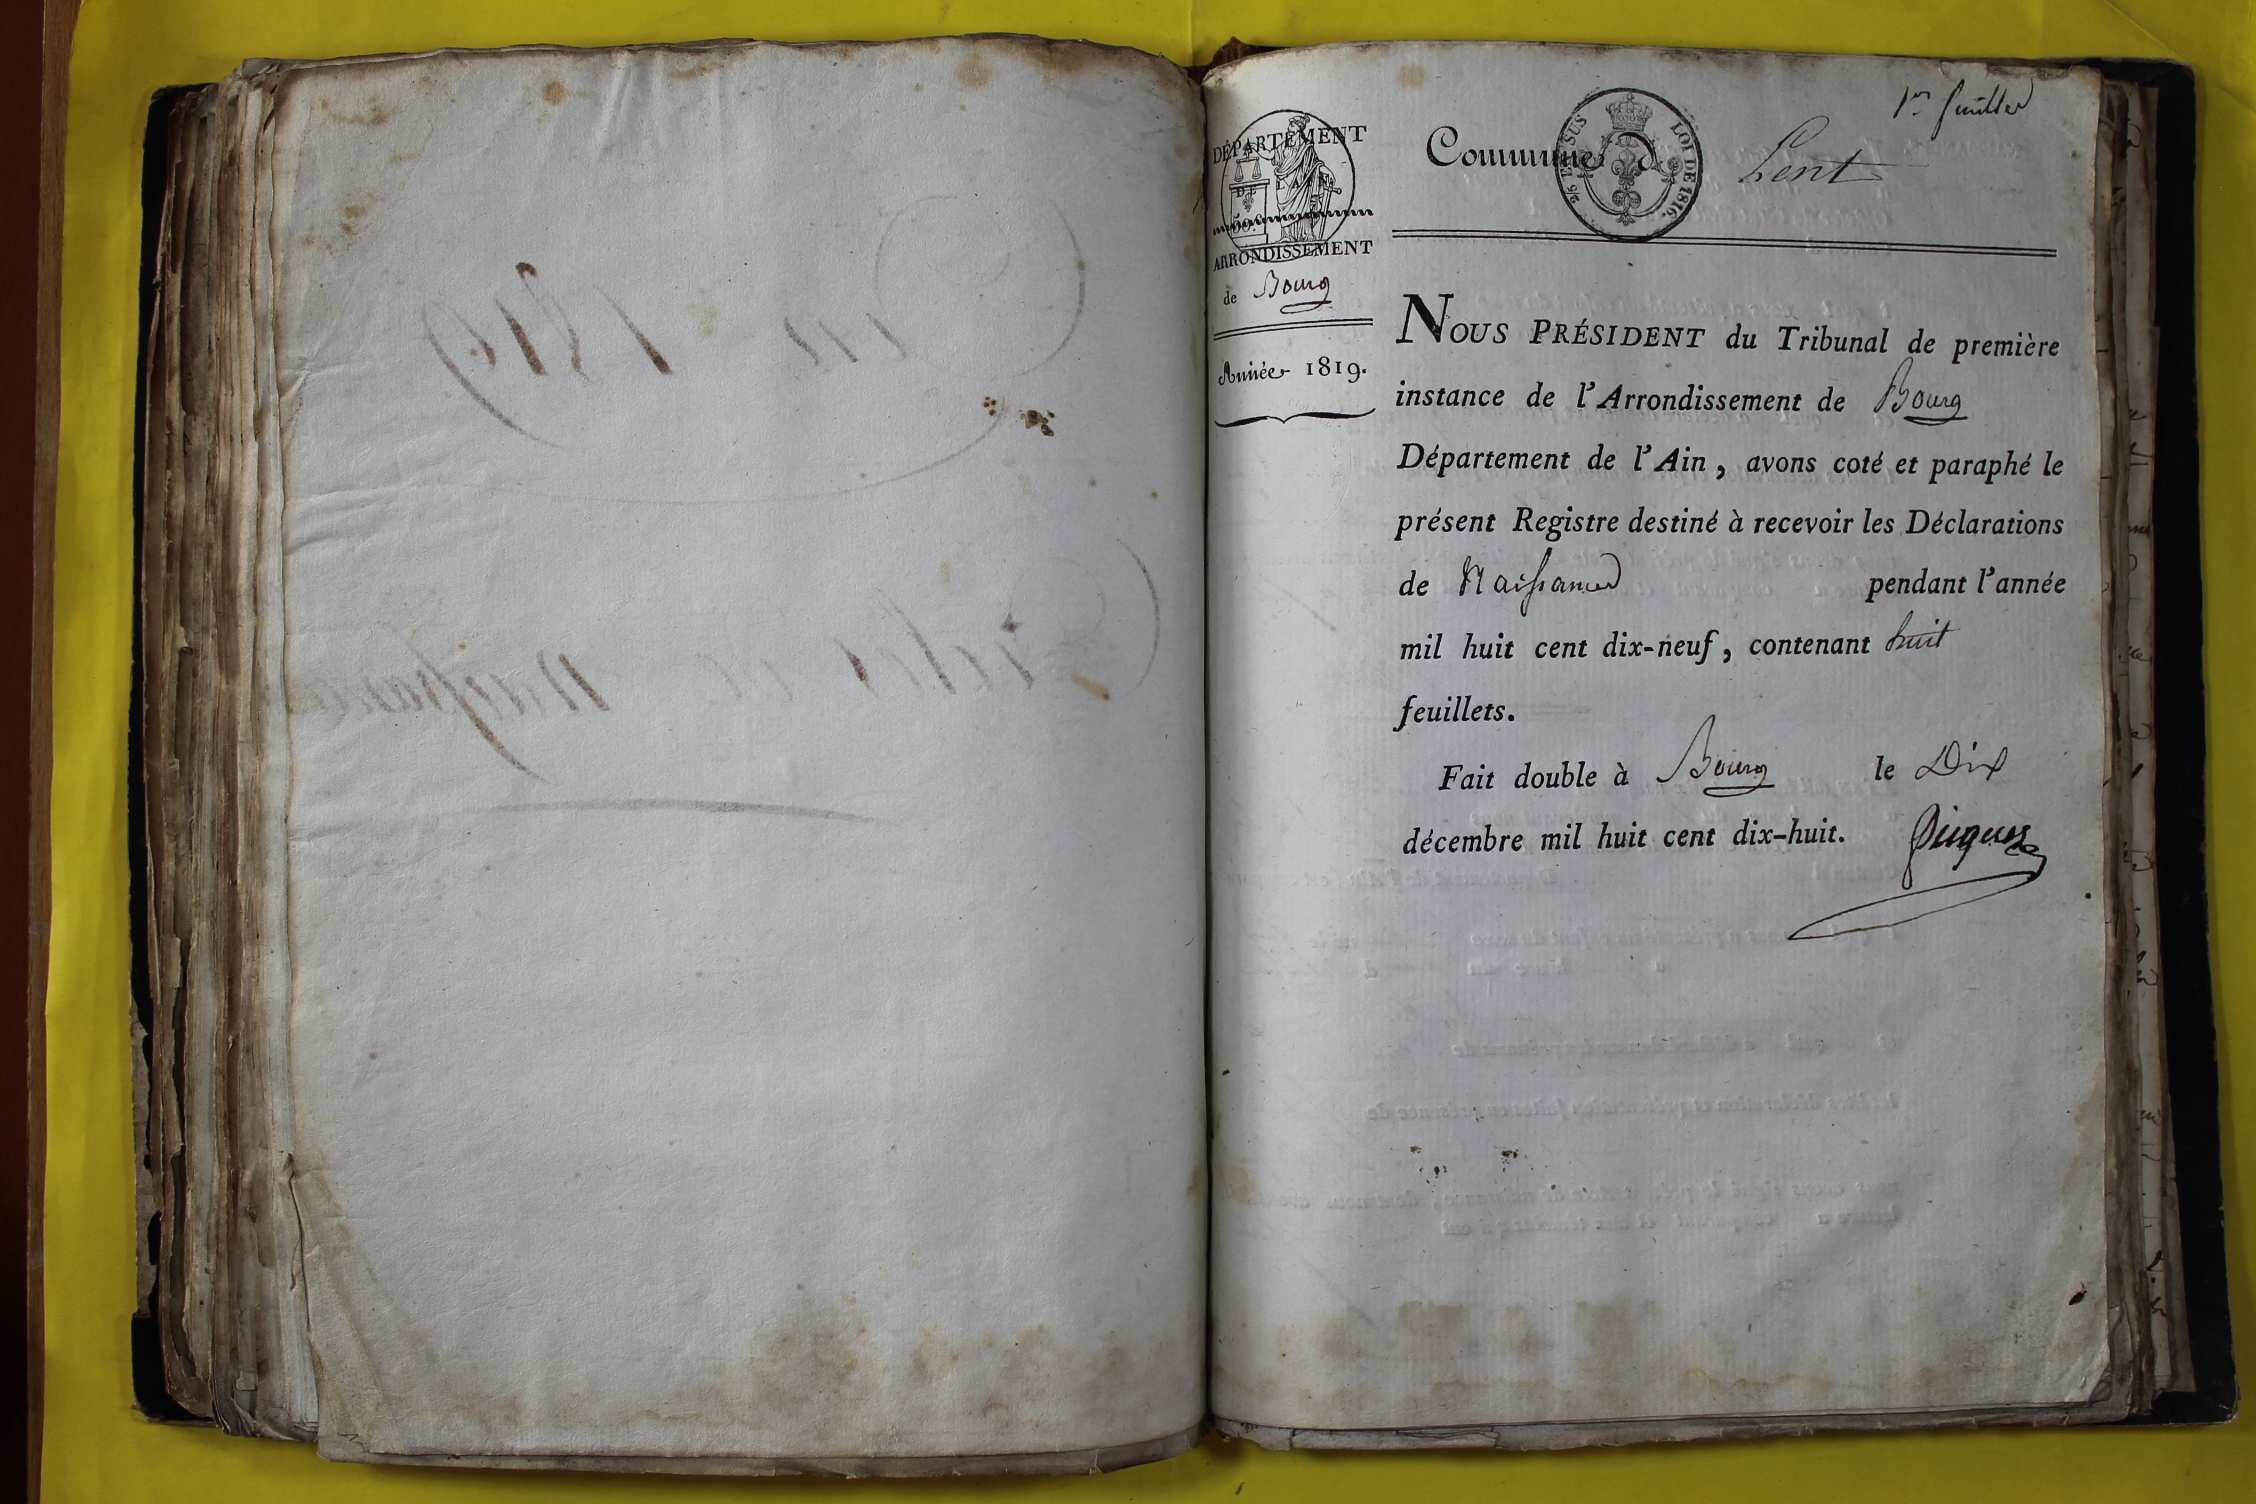 An 1819
Actes de Naissances
1er feuillet
DÉPARTEMENT
DE L'AIN
50
ARRONDISSEMENT
de Bourg
Année 1819.
Commune d Lent
EN SUS
LOI DE 1816.
NOUS PRÉSIDENT du Tribunal de première
instance de l'Arrondissement de Bourg
Département de l'Ain, avons coté et paraphé le
présent Registre destiné à recevoir les Déclarations
de Naissances pendant l'année
mil huit cent dix-neuf, contenant huit
feuillets.
Fait double à Bourg le Dix
décembre mil huit cent dix-huit.